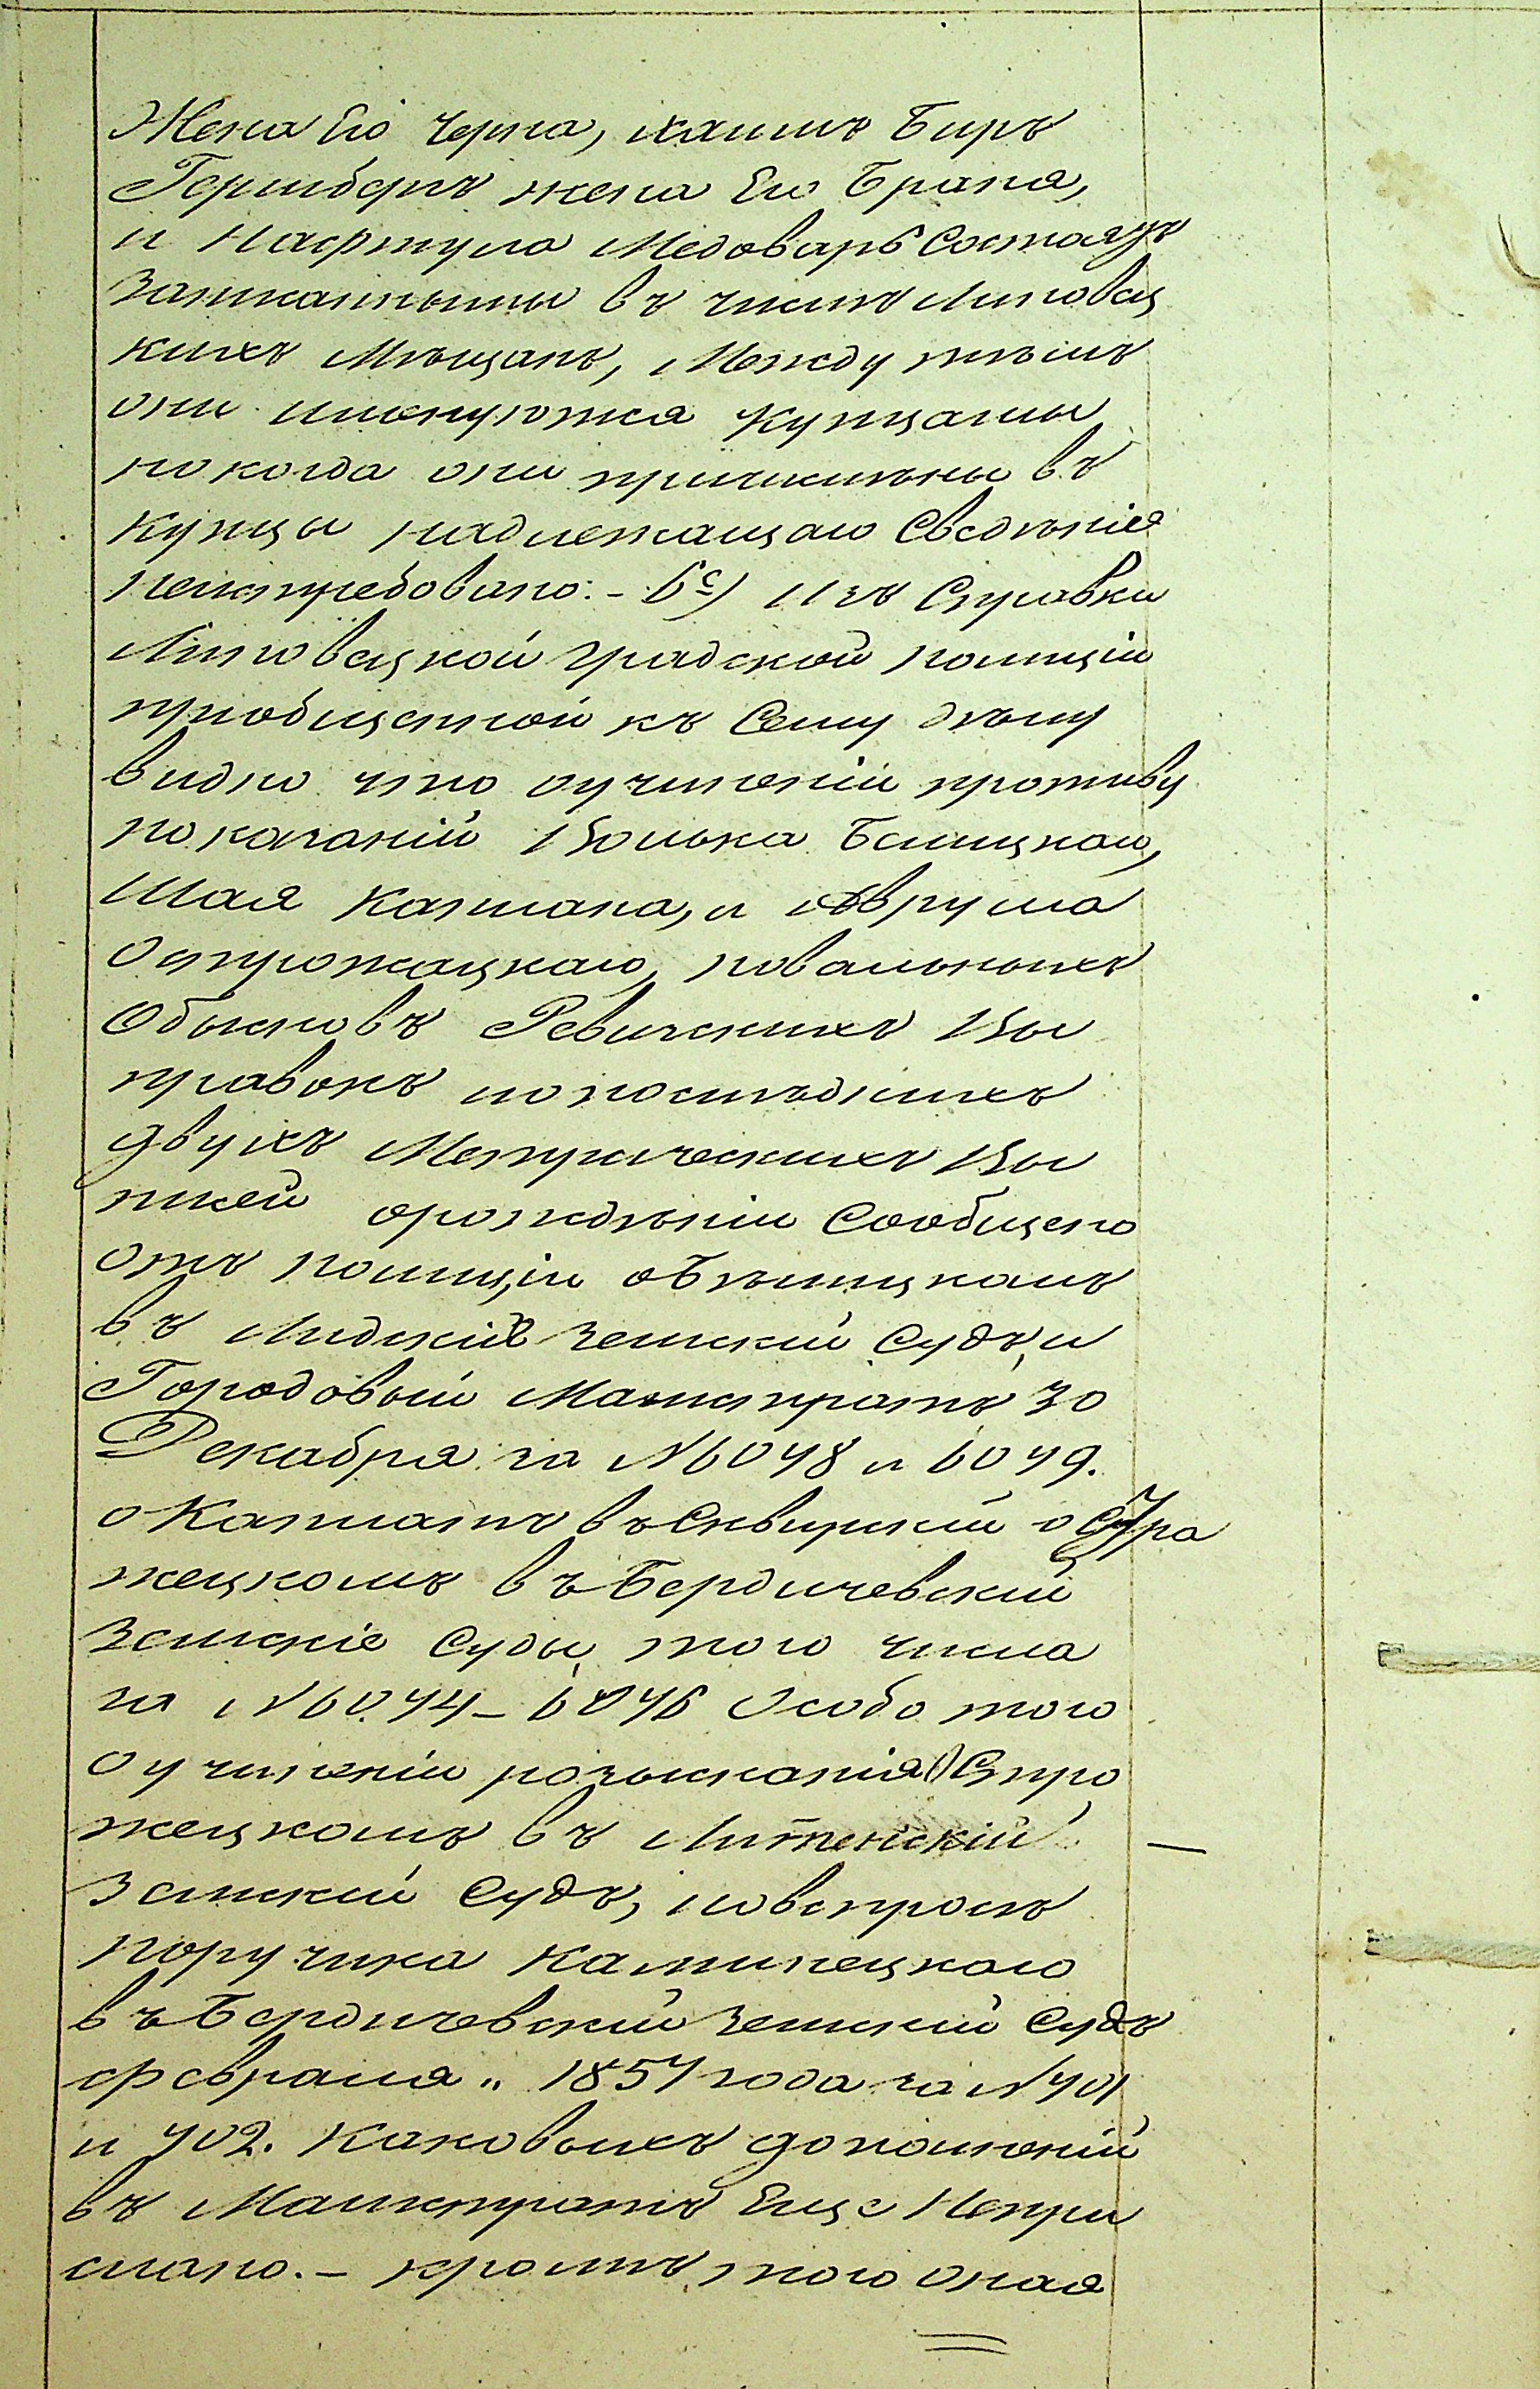 Жена Его Черна, хаимъ Биръ
Гершберъ жена Его Брана,
и Нафтула Медоваръ Состоядъ
записанными въ числѣ Липовец
кихъ Мѣщанъ, Между тѣмъ
они именуются Купцами
но когда они причислены въ
купцы надлежащаго Сведѣнія
неистребовано:- 6е) Изъ Справки
Липовецкой градской полиціи
приобщенной къ Сему дѣлу
видно что оучиненіи противу
показаній Волька Белицкаго,
Шая Каплана, и Аврума
Острожецкаго, повальныхъ
Обысковъ Ревизскихъ Вы
правокъ и о послѣднихъ
двухъ Метрическихъ Вы
писей орожденіи Сообщено
отъ полиціи оБѣлицкомъ
въ Лидскій земскій Судъ, и
Городовый Магистратъ 30
Декабря за N 6048 и 6049.
о Капланѣ въ Сквирскій о Стра
жецкомъ въ Бердичевскій
Земскіе Суды того числа
за N 6044 – 6046 Особо того
оучиненіи розысканія О Стро
жецкомъ въ Литенскій
Земскій Судъ, и о вспросѣ
поручика Каминецкаго
въ Бердичевскій Земскій Судъ
февраля „ 1857 года за N 701
и 702. каковыхъ дополненій
въ Магистратъ Еще Непри
слано. – кромѣ того оная